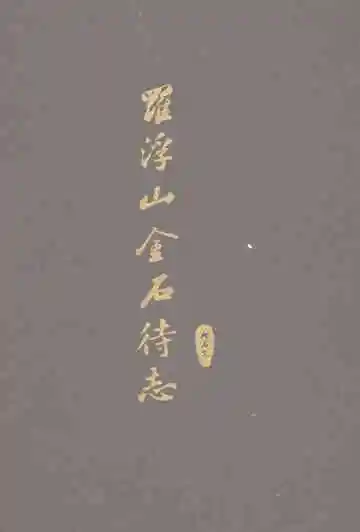 羅浮山金石待志